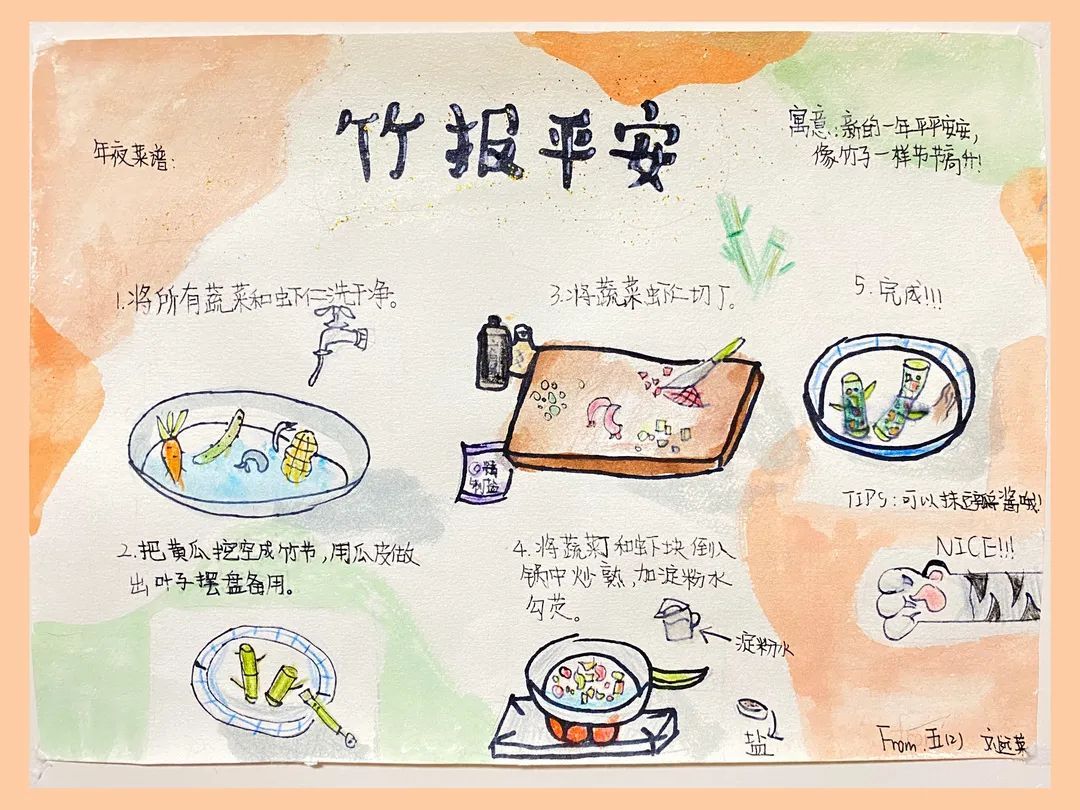 年夜菜谱:
竹报平安
寓意:新的一年平平安安,
像竹子一样节节高升!
1.将所有蔬菜和虾仁洗干净。
2.把黄瓜挖空成竹节,用瓜皮做
出叶子摆盘备用。
3.将蔬菜虾仁切丁。
精制盐
4.将蔬菜丁和虾块倒入
锅中炒熟,加淀粉水
勾芡。
淀粉水
盐
5.完成!!!
TIPS:可以抹豆瓣酱哦!
NICE!!!
From.五(2)